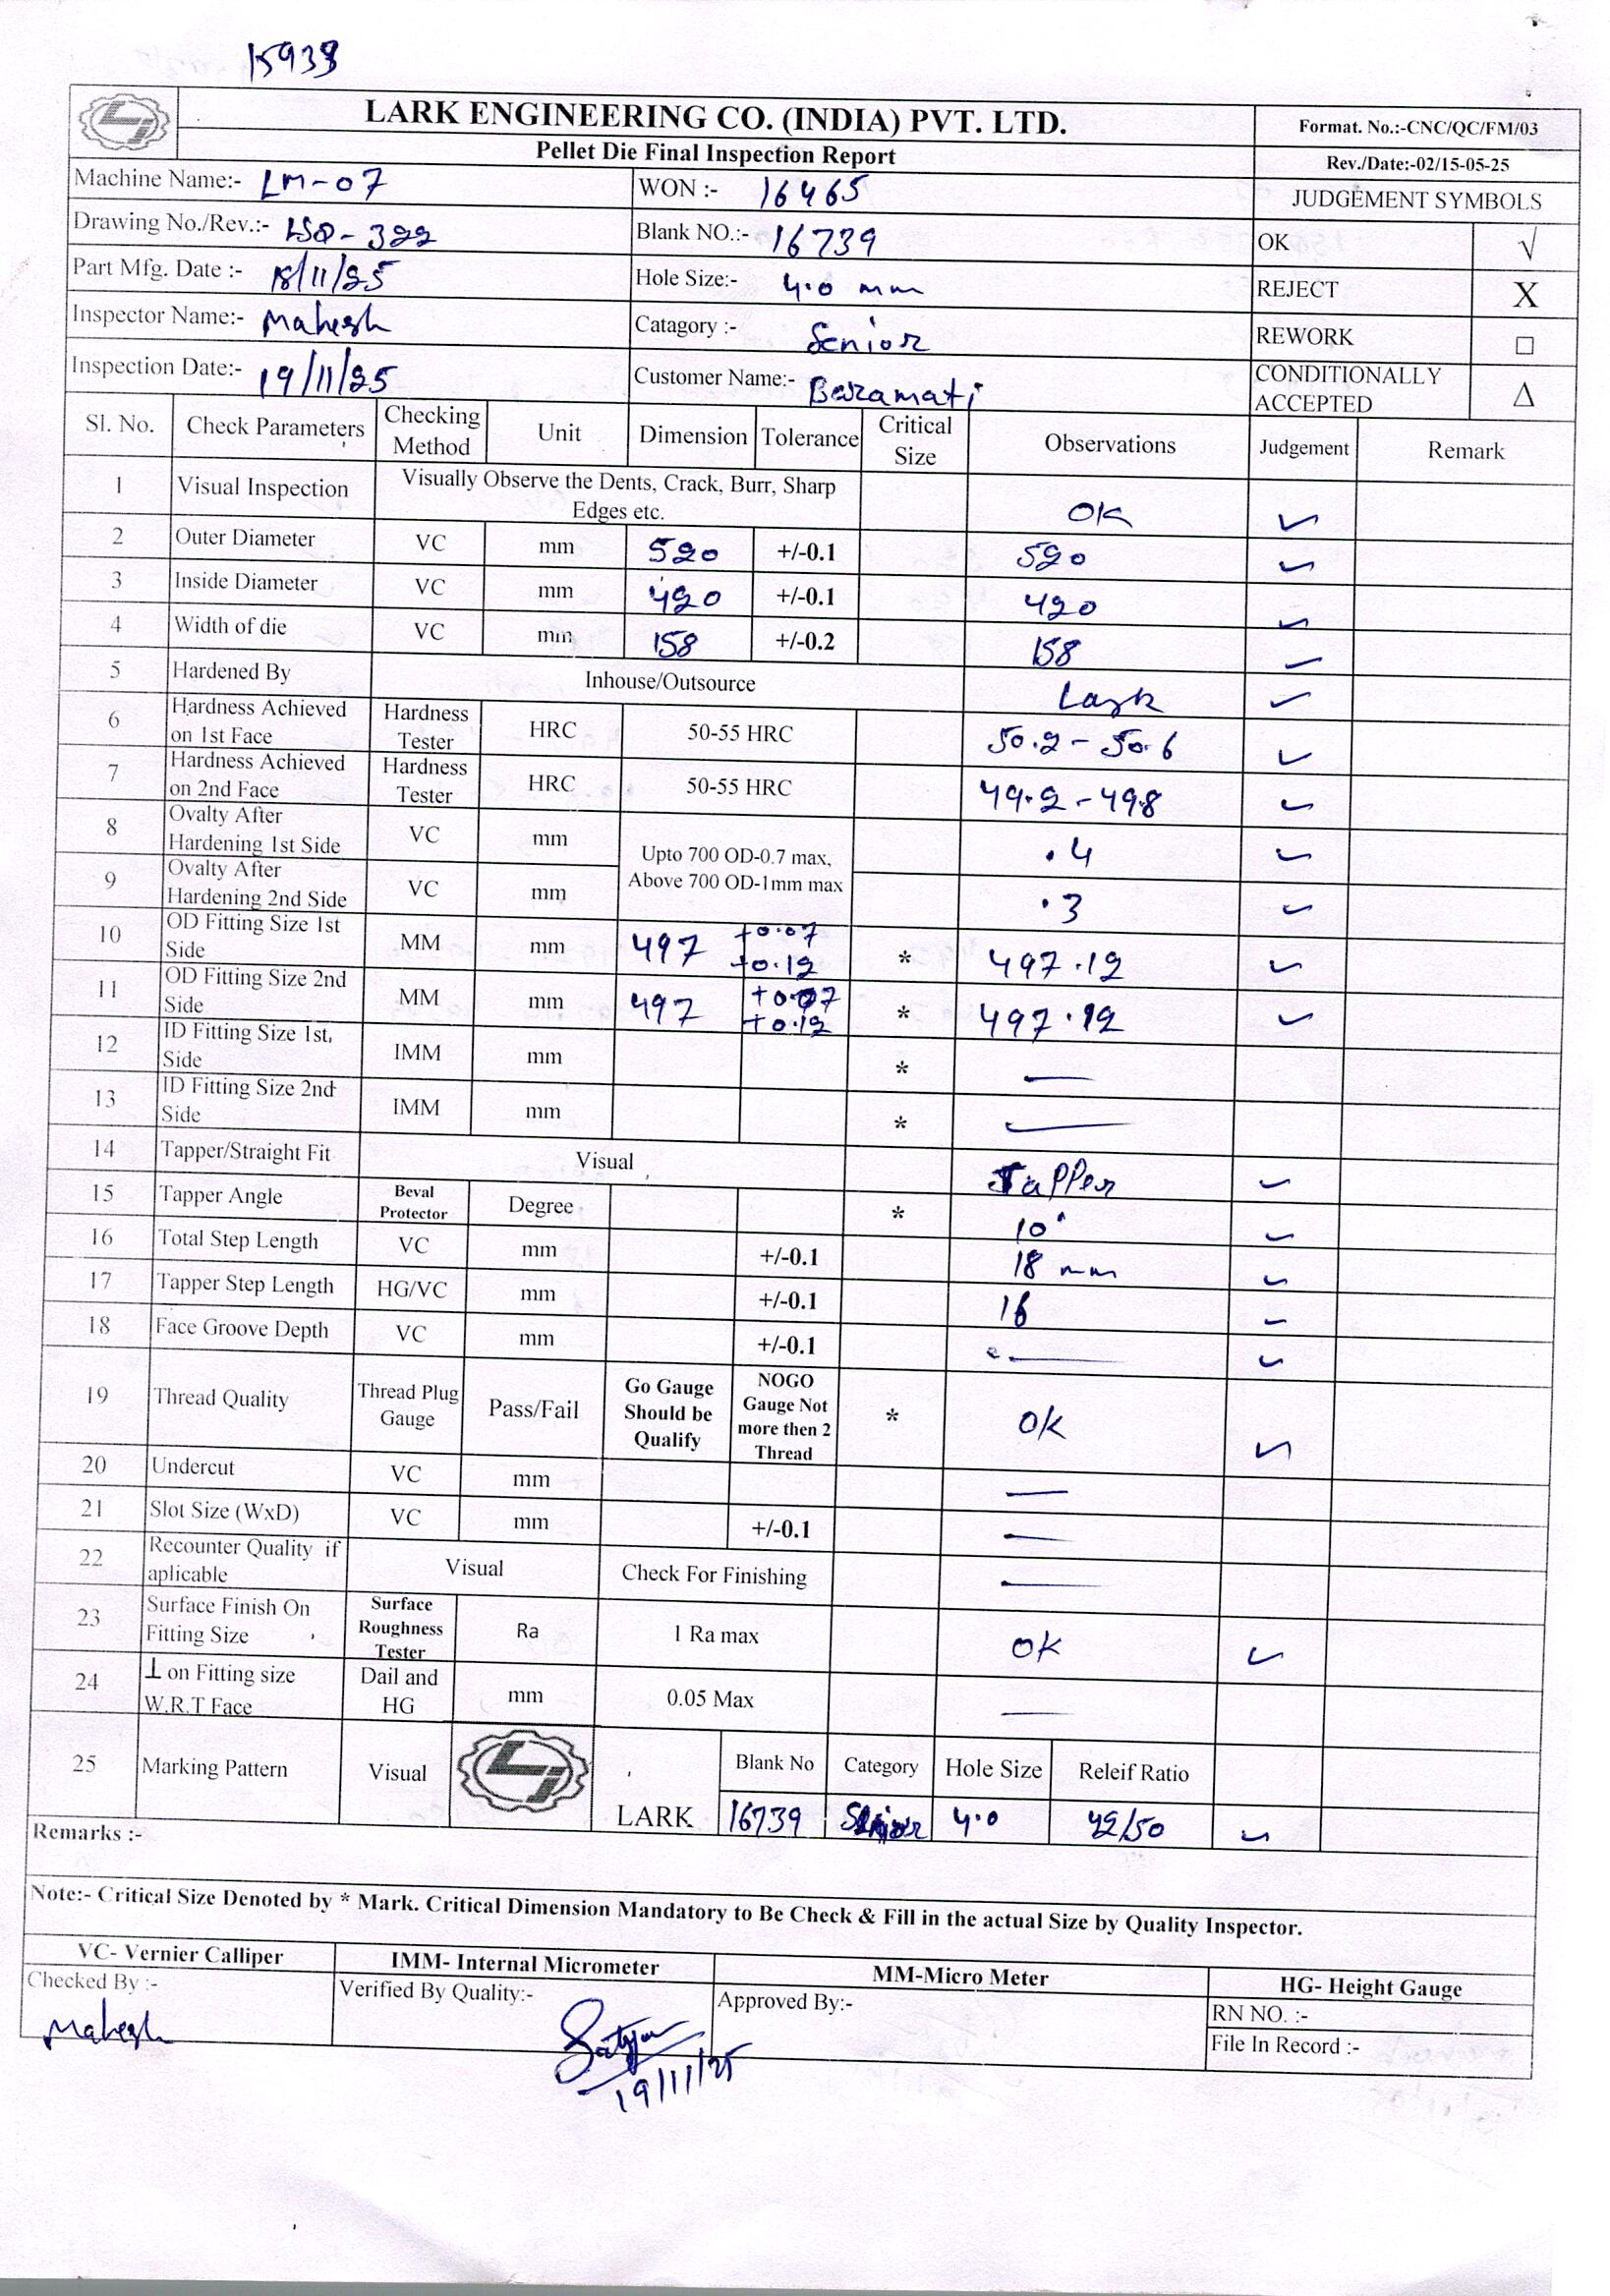 15938
LARK ENGINEERING CO. (INDIA) PVT. LTD.
Format. No.:-CNC/QC/FM/03
Pellet Die Final Inspection Report
Rev./Date:-02/15-05-25
Machine Name:- LM-07
WON :- 16465
JUDGEMENT SYMBOLS
Drawing No./Rev.:- LSD-322
Blank NO.:- 16739
OK √
Part Mfg. Date :- 18/11/25
Hole Size:- 4.0 mm
REJECT X
Inspector Name:- Mahesh
Catagory :- Senior
REWORK □
Inspection Date:- 19/11/25
Customer Name:- Baramati
CONDITIONALLY ACCEPTED Δ
Sl. No. Check Parameters Checking Method Unit Dimension Tolerance Critical Size Observations Judgement Remark
1 Visual Inspection Visually Observe the Dents, Crack, Burr, Sharp Edges etc. OK ✓
2 Outer Diameter VC mm 520 +/-0.1 520 ✓
3 Inside Diameter VC mm 420 +/-0.1 420 ✓
4 Width of die VC mm 158 +/-0.2 158 ✓
5 Hardened By Inhouse/Outsource Lark ✓
6 Hardness Achieved on 1st Face Hardness Tester HRC 50-55 HRC 50.2 - 50.6 ✓
7 Hardness Achieved on 2nd Face Hardness Tester HRC 50-55 HRC 49.2 - 49.8 ✓
8 Ovalty After Hardening 1st Side VC mm Upto 700 OD-0.7 max, Above 700 OD-1mm max .4 ✓
9 Ovalty After Hardening 2nd Side VC mm .3 ✓
10 OD Fitting Size 1st Side MM mm 497 +0.07 +0.12 * 497.12 ✓
11 OD Fitting Size 2nd Side MM mm 497 +0.07 +0.12 * 497.12 ✓
12 ID Fitting Size 1st. Side IMM mm * —
13 ID Fitting Size 2nd Side IMM mm * —
14 Tapper/Straight Fit Visual Tapper ✓
15 Tapper Angle Beval Protector Degree * 10° ✓
16 Total Step Length VC mm +/-0.1 18 mm ✓
17 Tapper Step Length HG/VC mm +/-0.1 16 ✓
18 Face Groove Depth VC mm +/-0.1 — ✓
19 Thread Quality Thread Plug Gauge Pass/Fail Go Gauge Should be Qualify NOGO Gauge Not more then 2 Thread * OK ✓
20 Undercut VC mm —
21 Slot Size (WxD) VC mm +/-0.1 —
22 Recounter Quality if aplicable Visual Check For Finishing —
23 Surface Finish On Fitting Size Surface Roughness Tester Ra 1 Ra max OK ✓
24 ⊥ on Fitting size W.R.T Face Dail and HG mm 0.05 Max —
25 Marking Pattern Visual LARK Blank No Category Hole Size Releif Ratio
16739 Senior 4.0 42/50 ✓
Remarks :-
Note:- Critical Size Denoted by * Mark. Critical Dimension Mandatory to Be Check & Fill in the actual Size by Quality Inspector.
VC- Vernier Calliper IMM- Internal Micrometer MM-Micro Meter HG- Height Gauge
Checked By :- Mahesh
Verified By Quality:- 19/11/25
Approved By:-
RN NO. :-
File In Record :-